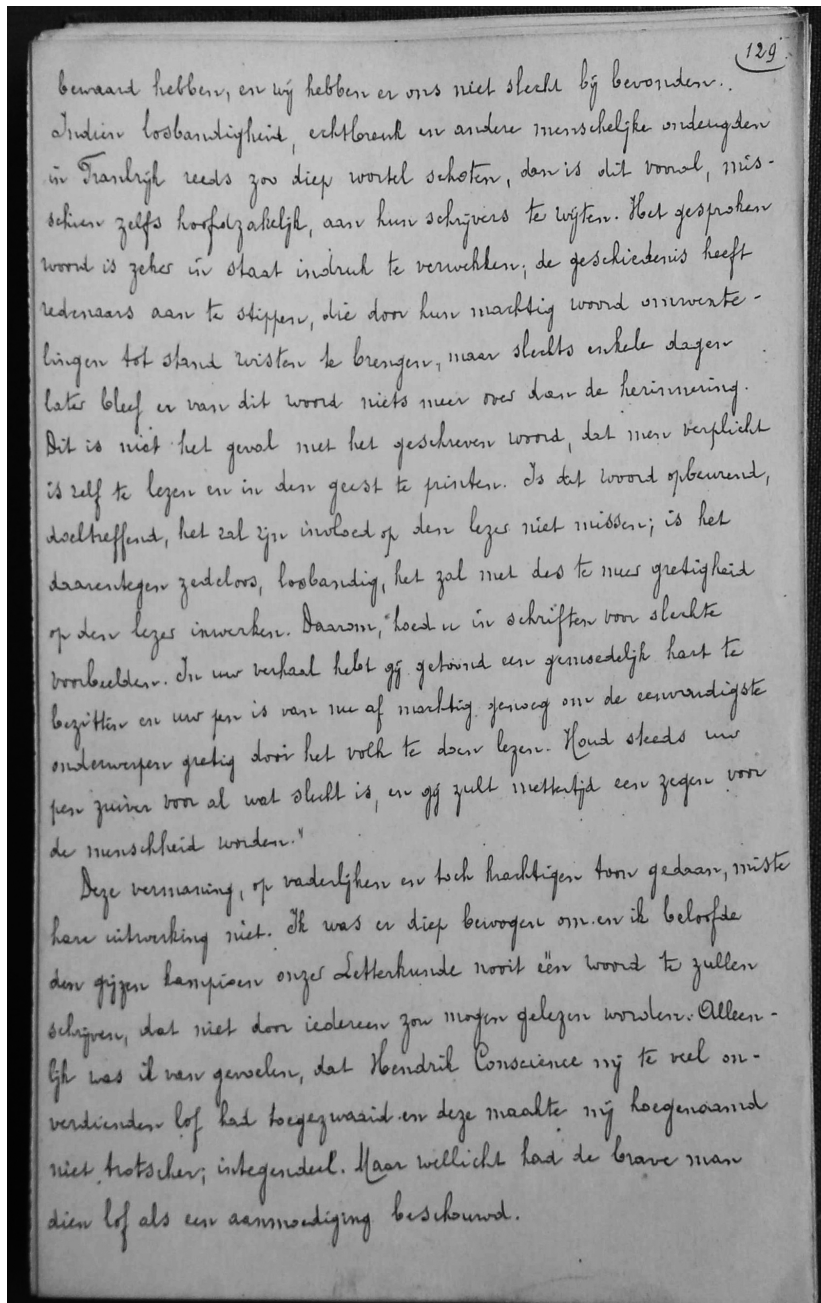 129
bewaard hebben, en wij hebben er ons niet slecht bij bevonden..
Indien losbandigheid, echtbreuk en andere menschelijke ondeugden
in Frankrijk reeds zoo diep wortel schoten, dan is dit vooral, mis-
schien zelfs hoofdzakelijk, aan hun schrijvers te wijten. Het gesproken
woord is zeker in staat indruk te verwekken; de geschiedenis heeft
redenaars aan te stippen, die door hun machtig woord omwente-
lingen tot stand wisten te brengen, maar slechts enkele dagen
later bleef er van dit woord niets meer over dan de herinnering.
Dit is niet het geval met het geschreven woord, dat men verplicht
is zelf te lezen en in den geest te printen. Is dat woord opbeurend,
doeltreffend, het zal zijn invloed op den lezer niet missen; is het
daarentegen zedeloos, losbandig, het zal met des te meer gretigheid
op den lezer inwerken. Daarom, "hoed u in schriften voor slechte
voorbeelden. In uw verhaal hebt gij getoond een gemoedelijk hart te
bezitten en uw pen is van nu af machtig genoeg om de eenvoudigste
onderwerpen gretig door het volk te doen lezen. Houd steeds uw
pen zuiver voor al wat slecht is, en gij zult mettertijd een zegen voor
de menschheid worden."
Deze vermaning, op vaderlijken en toch krachtigen toon gedaan, miste
hare uitwerking niet. Ik was er diep bewogen om en ik beloofde
den grijzen kampioen onzer Letterkunde nooit één woord te zullen
schrijven, dat niet door iedereen zou mogen gelezen worden. Alleen-
lijk was ik van gevoelen, dat Hendrik Conscience mij te veel on-
verdienden lof had toegezwaaid en deze maakte mij hoegenaamd
niet trotscher; integendeel. Maar wellicht had de brave man
dien lof als een aanmoediging beschouwd.